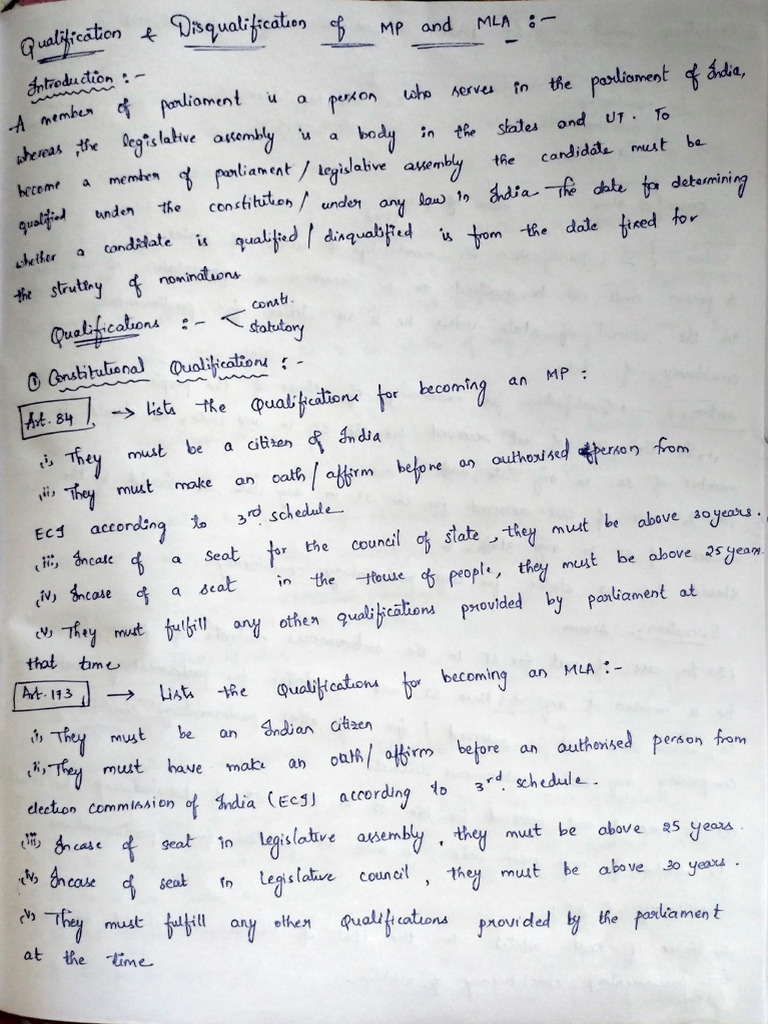 Qualification & Disqualification of MP and MLA :-
Introduction :-
A member of parliament is a person who serves in the parliament of India,
whereas, the legislative assembly is a body in the states and UT. To
become a member of parliament / legislative assembly the candidate must be
qualified under the constitution / under any law in India The date for determining
whether a candidate is qualified / disqualified is from the date fixed for
the strutiny of nominations
Qualifications :- < consti.
statutory
① Constitutional Qualifications :-
Art. 84 → Lists the Qualifications for becoming an MP :
(i) They must be a citizen of India
(ii) They must make an oath / affirm before an authorised person from
ECI according to 3rd schedule
(iii) Incase of a seat for the council of state, they must be above 30 years.
(iv) Incase of a seat in the House of people, they must be above 25 years.
(v) They must fulfill any other qualifications provided by parliament at
that time
Art. 173 → Lists the Qualifications for becoming an MLA :-
(i) They must be an Indian citizen
(ii) They must have make an oath / affirm before an authorised person from
election commission of India (ECI) according to 3rd schedule.
(iii) Incase of seat in legislative assembly, they must be above 25 years.
(iv) Incase of seat in Legislative council, they must be above 30 years.
(v) They must fulfill any other Qualifications provided by the parliament
at the time